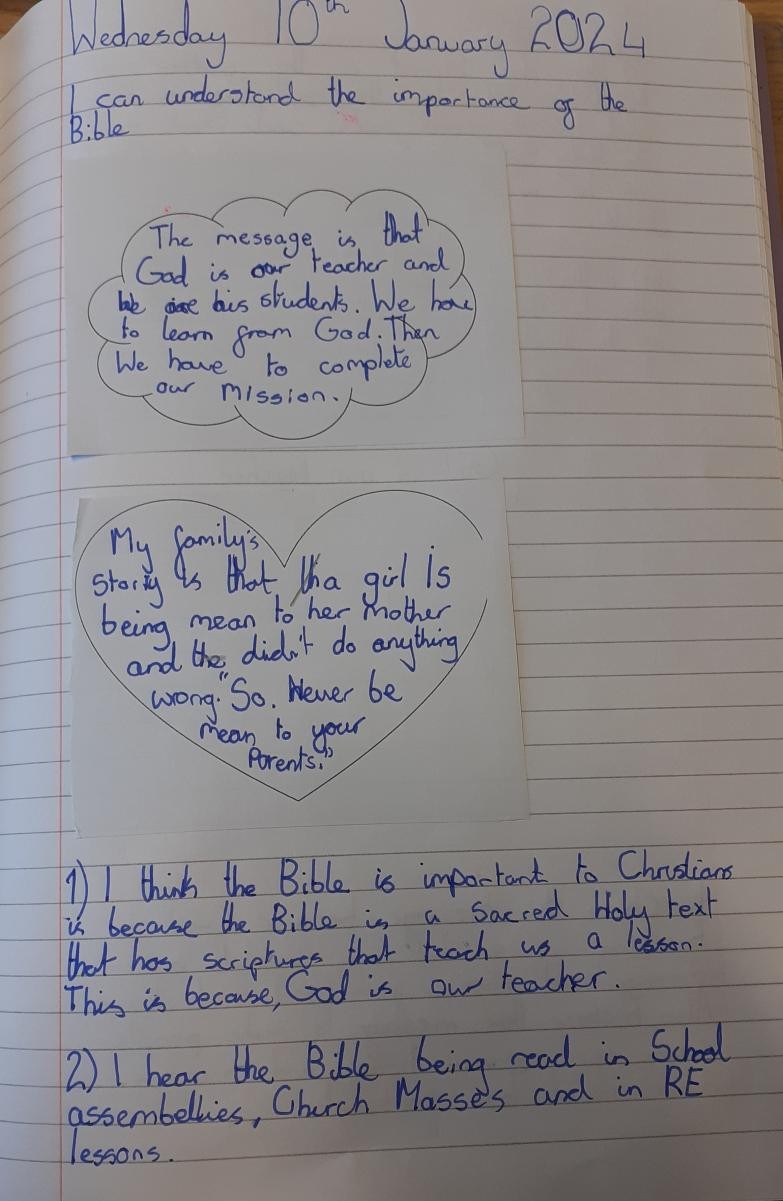 Wednesday 10th January 2024
I can understand the importance of the
Bible
The message is that
God is our teacher and
We are his students. We have
to learn from God. Then
We have to complete
our mission.
My family's
Story is that tha girl is
being mean to her mother
and the didn't do anything
wrong. "So. Never be
mean to your
Parents."
1) I think the Bible is important to Christians
is because the Bible is a Sacred Holy text
that has scriptures that teach us a lesson.
This is because, God is our teacher.
2) I hear the Bible being read in School
assembellies, Church Masses and in RE
lessons.